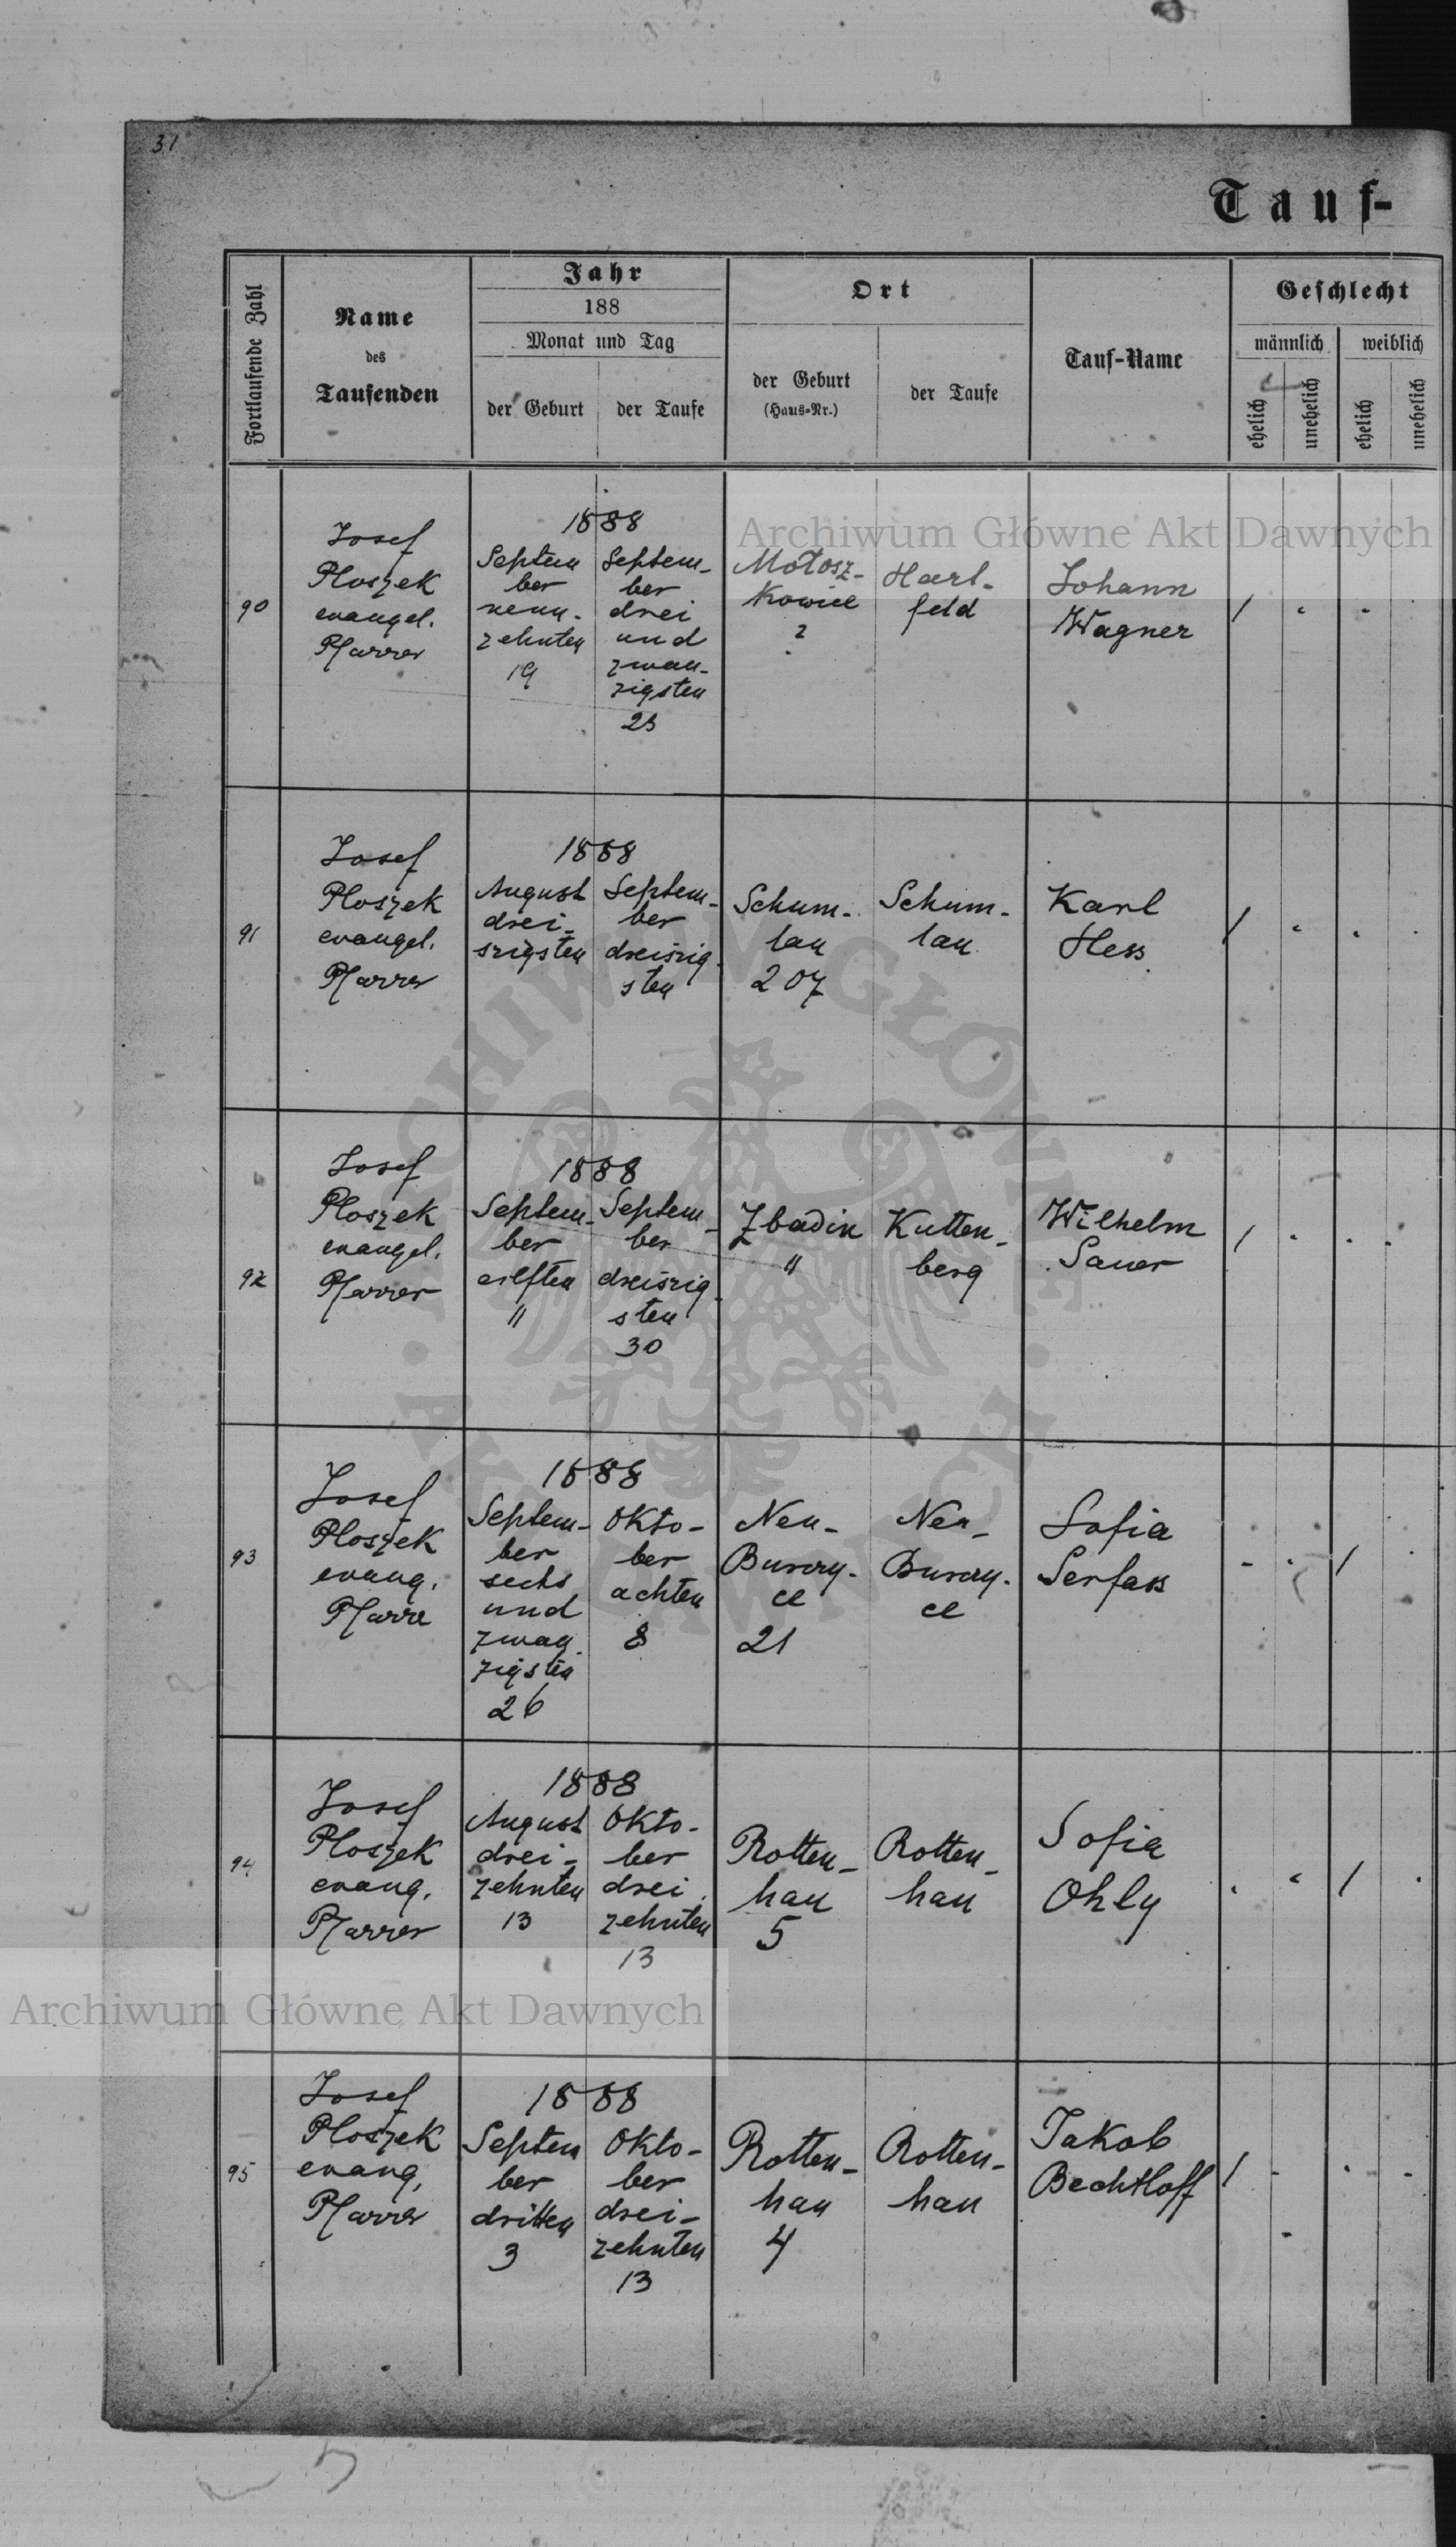 31
Tauf-
Fortlaufende Zahl
Name
des
Taufenden
Jahr
188
Monat und Tag
der Geburt
der Taufe
Ort
der Geburt
(Haus-Nr.)
der Taufe
Tauf-Name
Geschlecht
männlich
weiblich
ehelich
unehelich
ehelich
unehelich
Archiwum Główne Akt Dawnych
90
Josef
Ploszek
evangel.
Pfarrer
1888
Septem
ber
neun-
zehnten
19
Septem-
ber
drei
und
zwan-
zigsten
23
Motosz-
kowice
2
Hart-
feld
Johann
Wagner
91
Josef
Ploszek
evangel.
Pfarrer
1888
August
drei-
szigsten
Septem-
ber
dreiszig-
sten
Schum-
lau
207
Schum-
lau
Karl
Hess
92
Josef
Ploszek
evangel.
Pfarrer
1888
Septem-
ber
eilften
11
Septem-
ber
dreiszig-
sten
30
Zbadin
"
Kutten-
berg
Wilhelm
Sauer
93
Josef
Ploszek
evang.
Pfarre
1888
Septem-
ber
sechs
und
zwan-
zigsten
26
Okto-
ber
achten
8
Neu-
Burczy-
ce
21
Neu-
Burczy-
ce
Sofia
Serfass
94
Josef
Ploszek
evang.
Pfarrer
1888
August
drei-
zehnten
13
Okto-
ber
drei
zehnten
13
Rotten-
hau
5
Rotten-
hau
Sofia
Ohly
Archiwum Główne Akt Dawnych
95
Josef
Ploszek
evang.
Pfarrer
1888
Septem
ber
dritten
3
Okto-
ber
drei-
zehnten
13
Rotten-
hau
4
Rotten-
hau
Jakob
Bechtloff